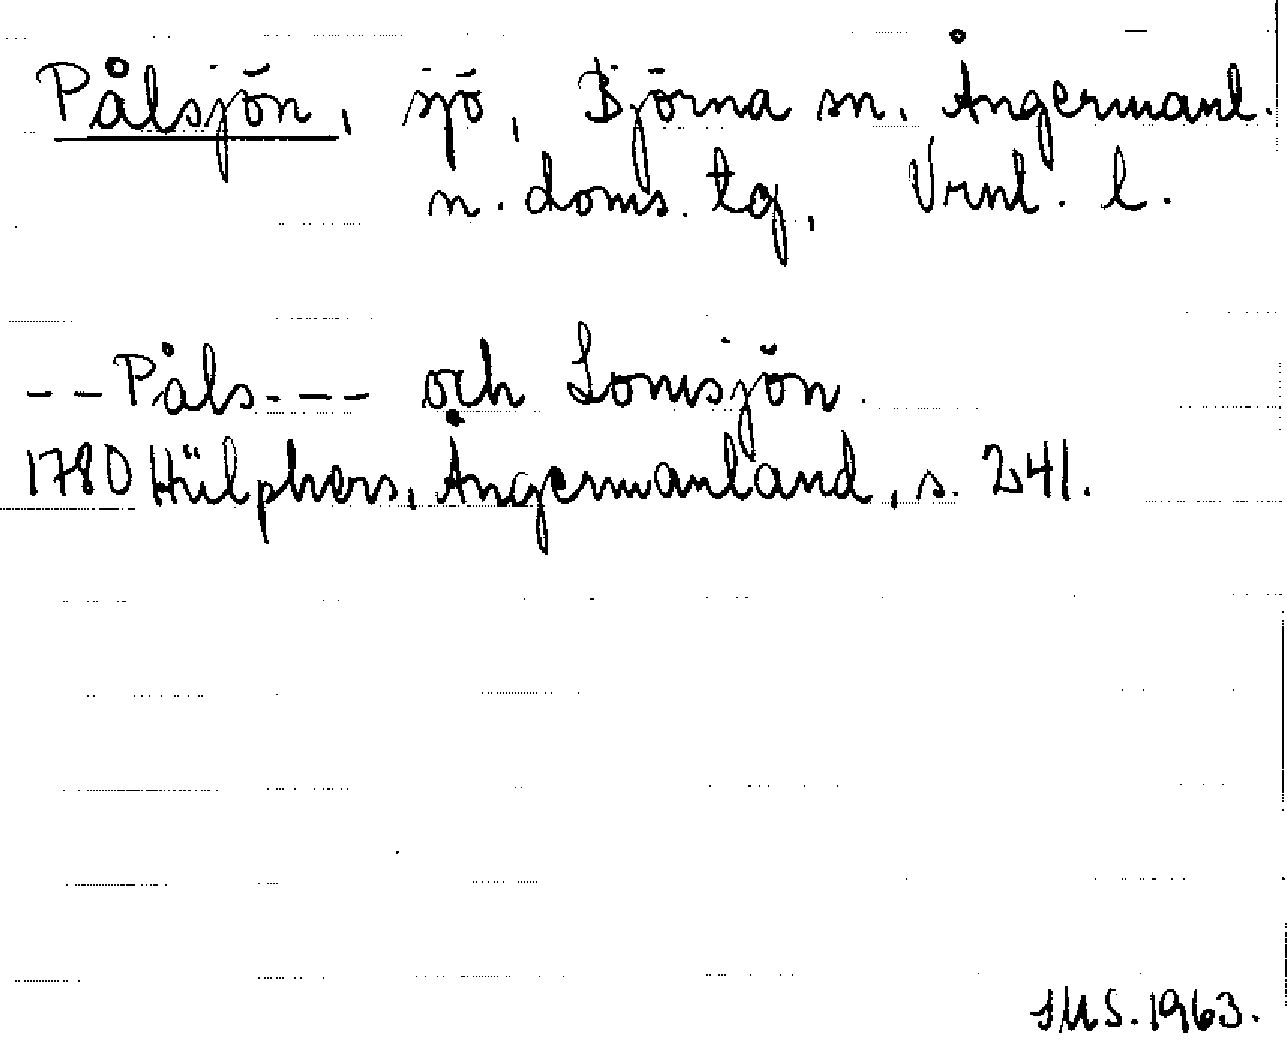 Pålsjön, sjö, Björna sn. Ångermanl.
n. doms. tg, Vrnl. l.
--Påls--- och Lomsjön.
1780 Hülphers, Ångermanland, s. 241.
SMS. 1963.